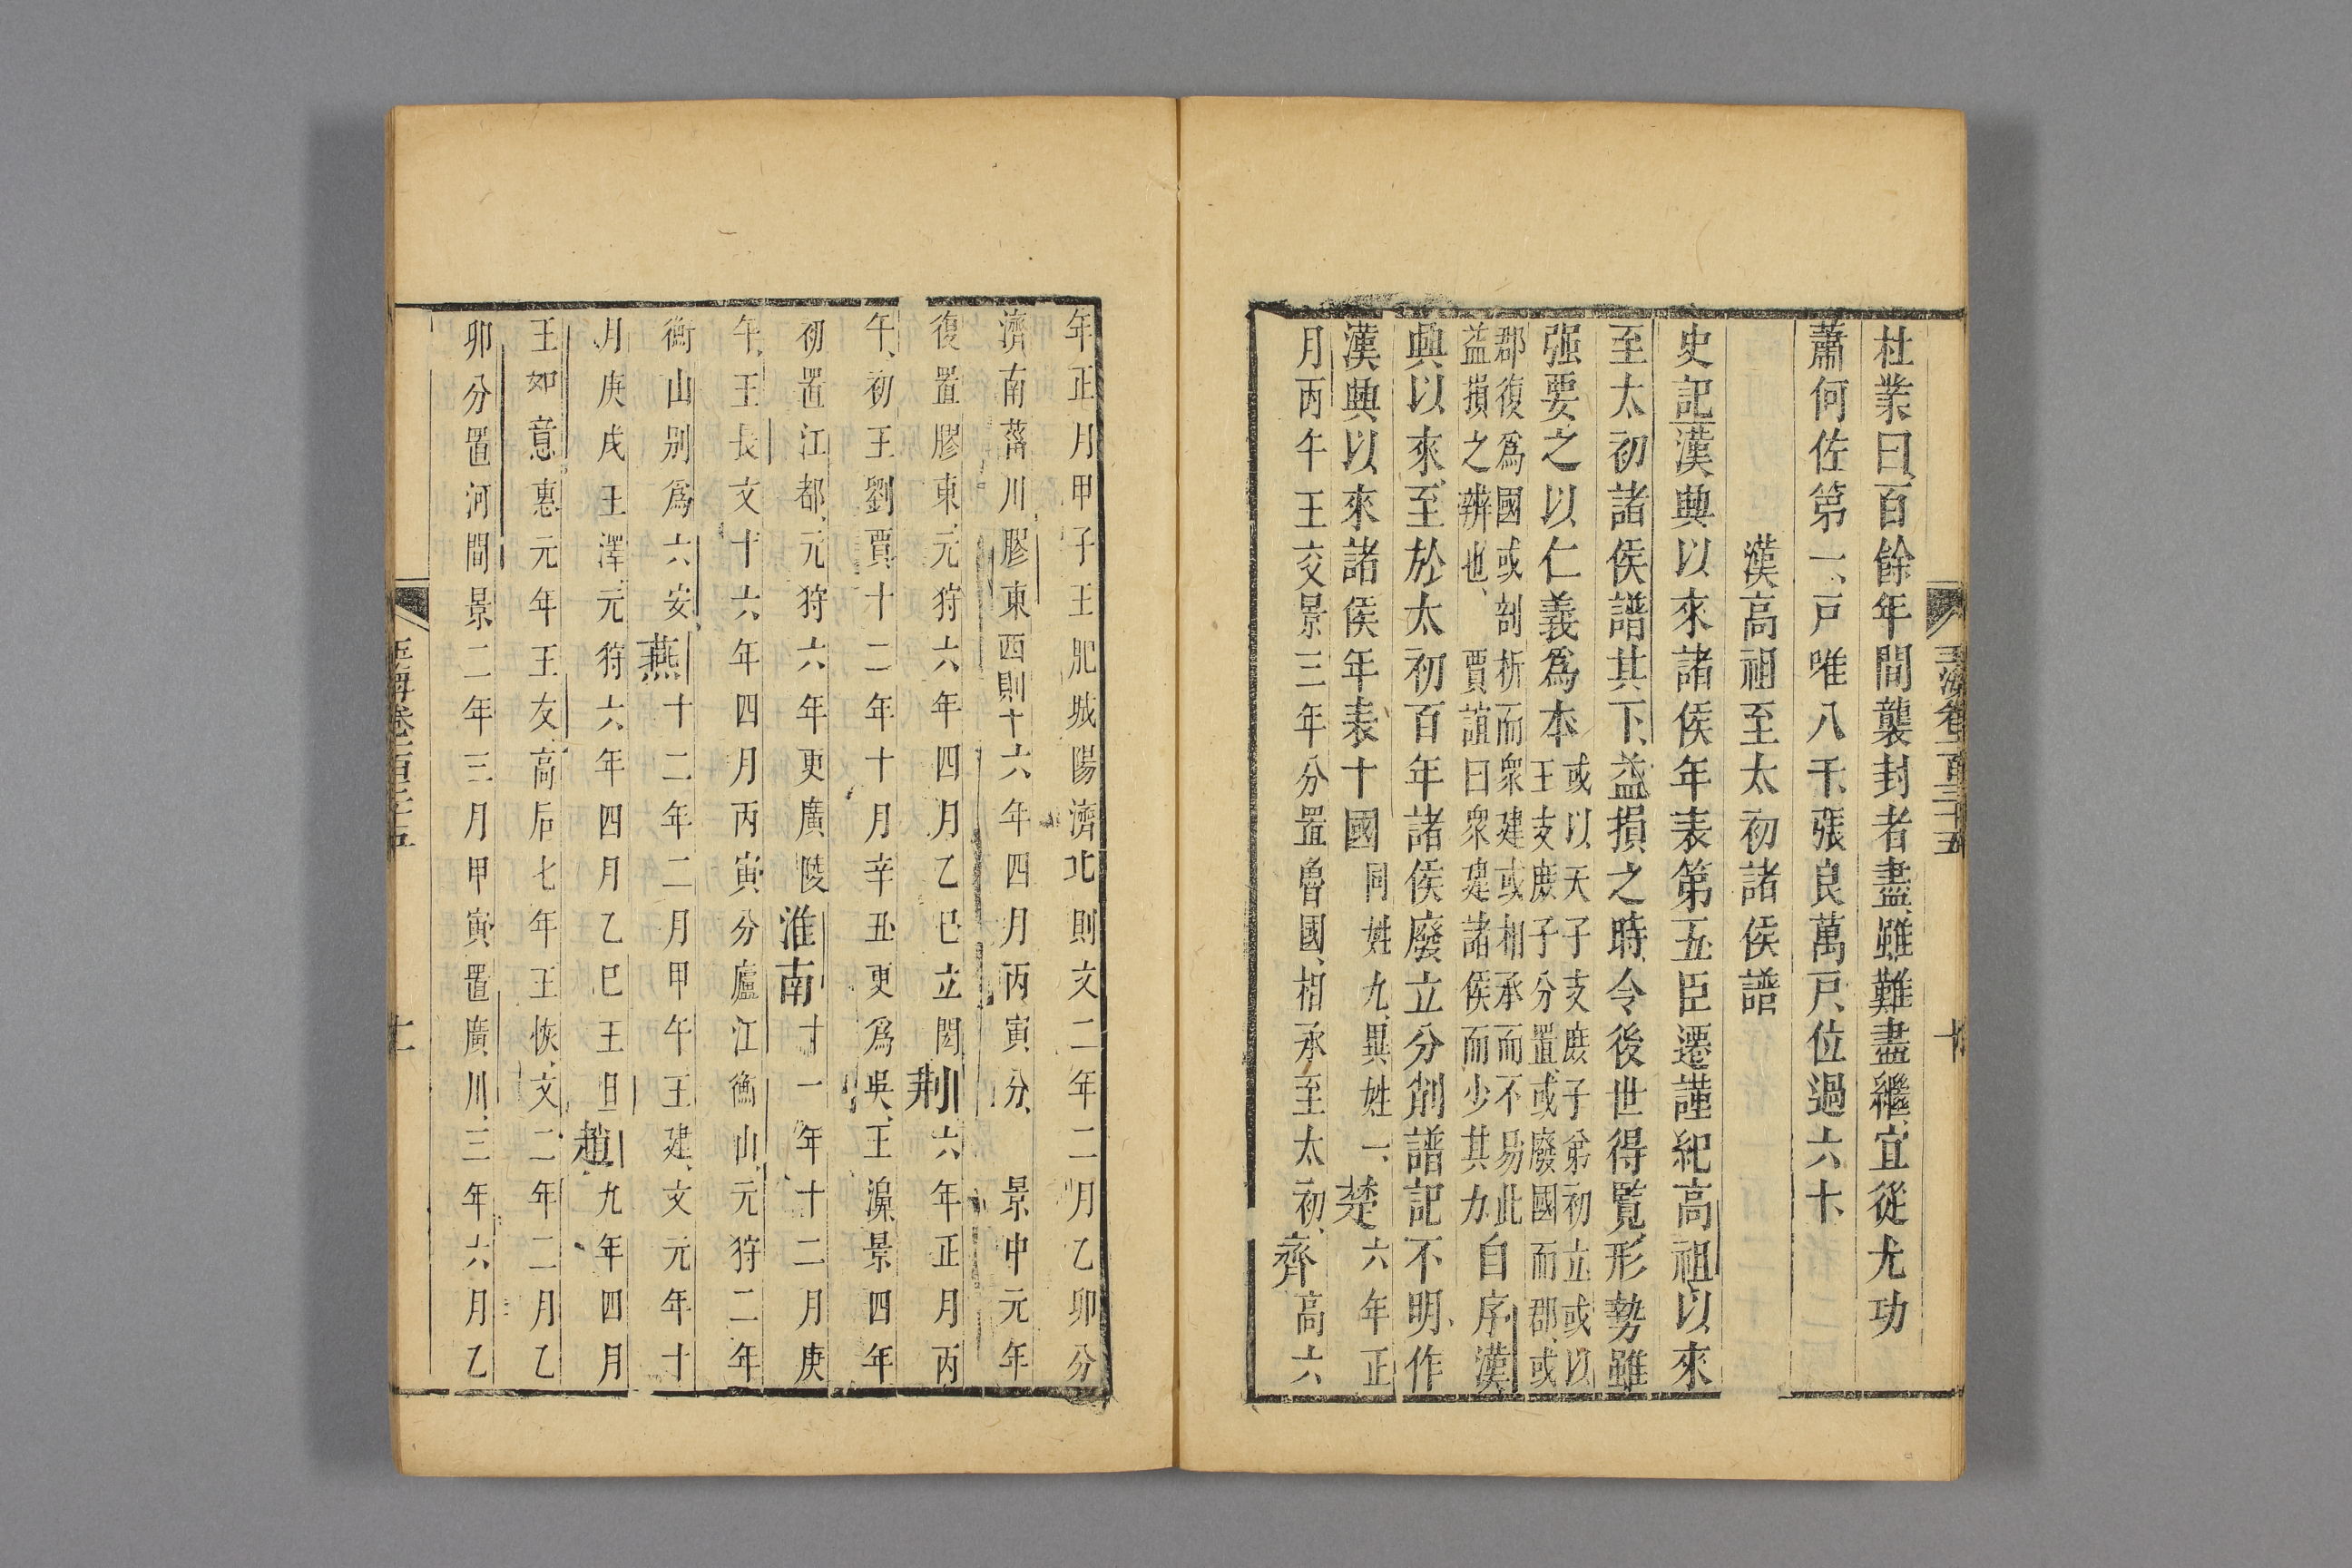 杜業曰百餘年間襲封者盡雖難盡繼宜從尤功
蕭何佐第一戸唯八千張良萬戸位過六十
漢高祖至太初諸侯譜
史記漢興以來諸侯年表第五臣遷謹紀高祖以來
至太初諸侯譜其下益損之時令後世得覽形勢雖
强要之以仁義爲本
或以天子支庶子弟初立或以
王支庶子分置或廢國而郡或
郡復爲國或剖析而衆建或相承而不易此
益損之辨也賈誼曰衆建諸侯而少其力
自序漢
興以來至於太初百年諸侯廢立分削譜記不明作
漢興以來諸侯年表十國同姓九異姓一楚六年正
月丙午王交景三年分置魯國相承至太初齊高六
年正月甲子王肥城陽濟北則文二年二月乙卯分
濟南菑川膠東西則十六年四月丙寅分景中元年
復置膠東元狩六年四月乙巳立閎荆六年正月丙
午初王劉賈十二年十月辛丑更爲吳王濞景四年
初置江都元狩六年更廣陵淮南十一年十二月庚
午王長文十六年四月丙寅分廬江衡山元狩二年
衡山别爲六安燕十二年二月甲午王建文元年十
月庚戌王澤元狩六年四月乙巳王旦趙九年四月
王如意惠元年王友高后七年王恢文二年二月乙
卯分置河間景二年三月甲寅置廣川三年六月乙